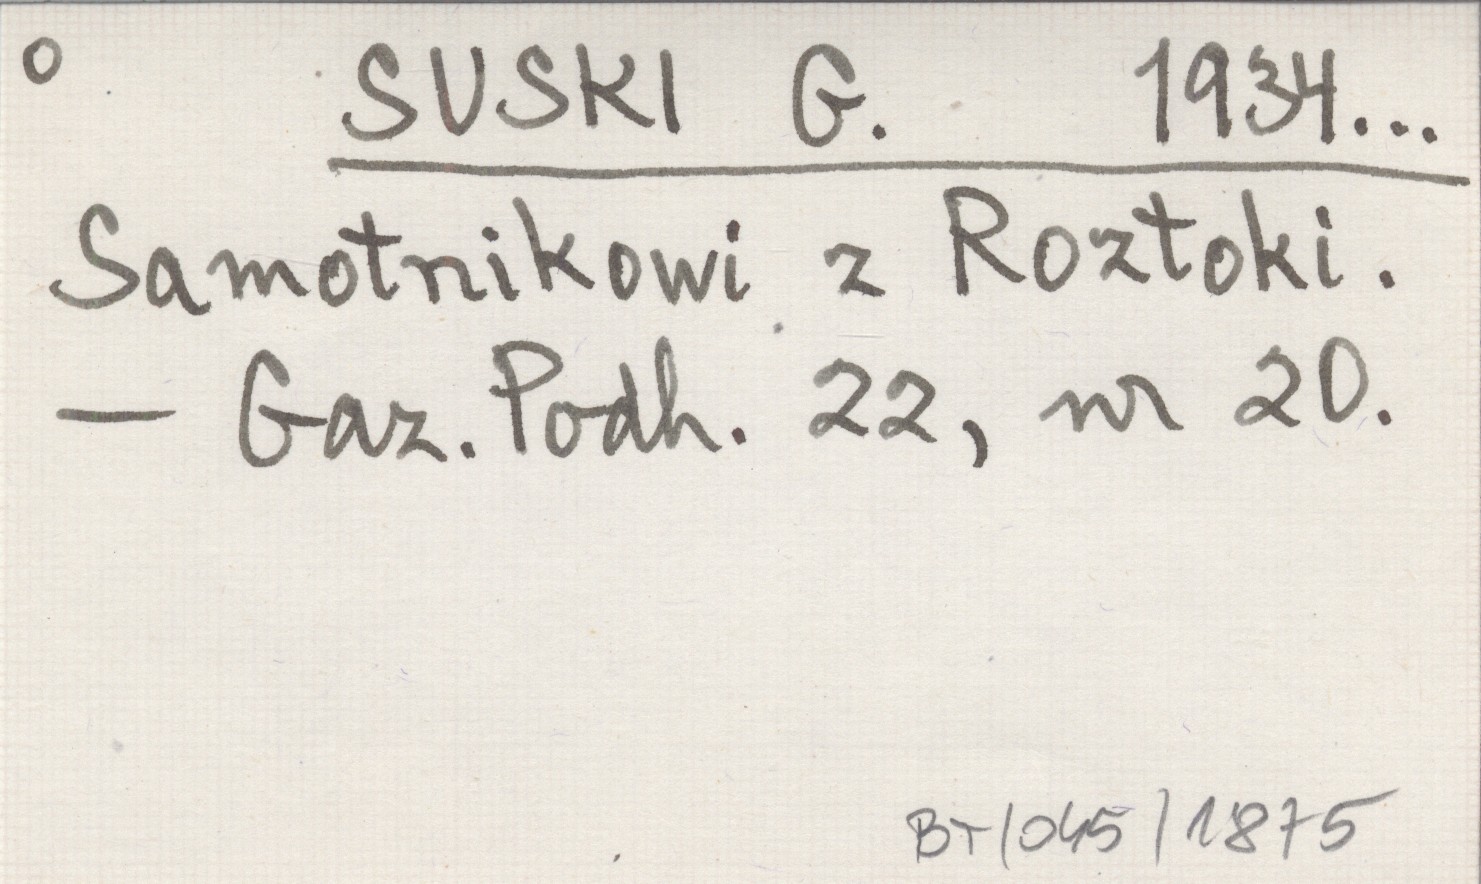 o SUSKI G. 1934...
Samotnikowi z Roztoki.
— Gaz. Podh. 22, nr 20.
BT/045/1875